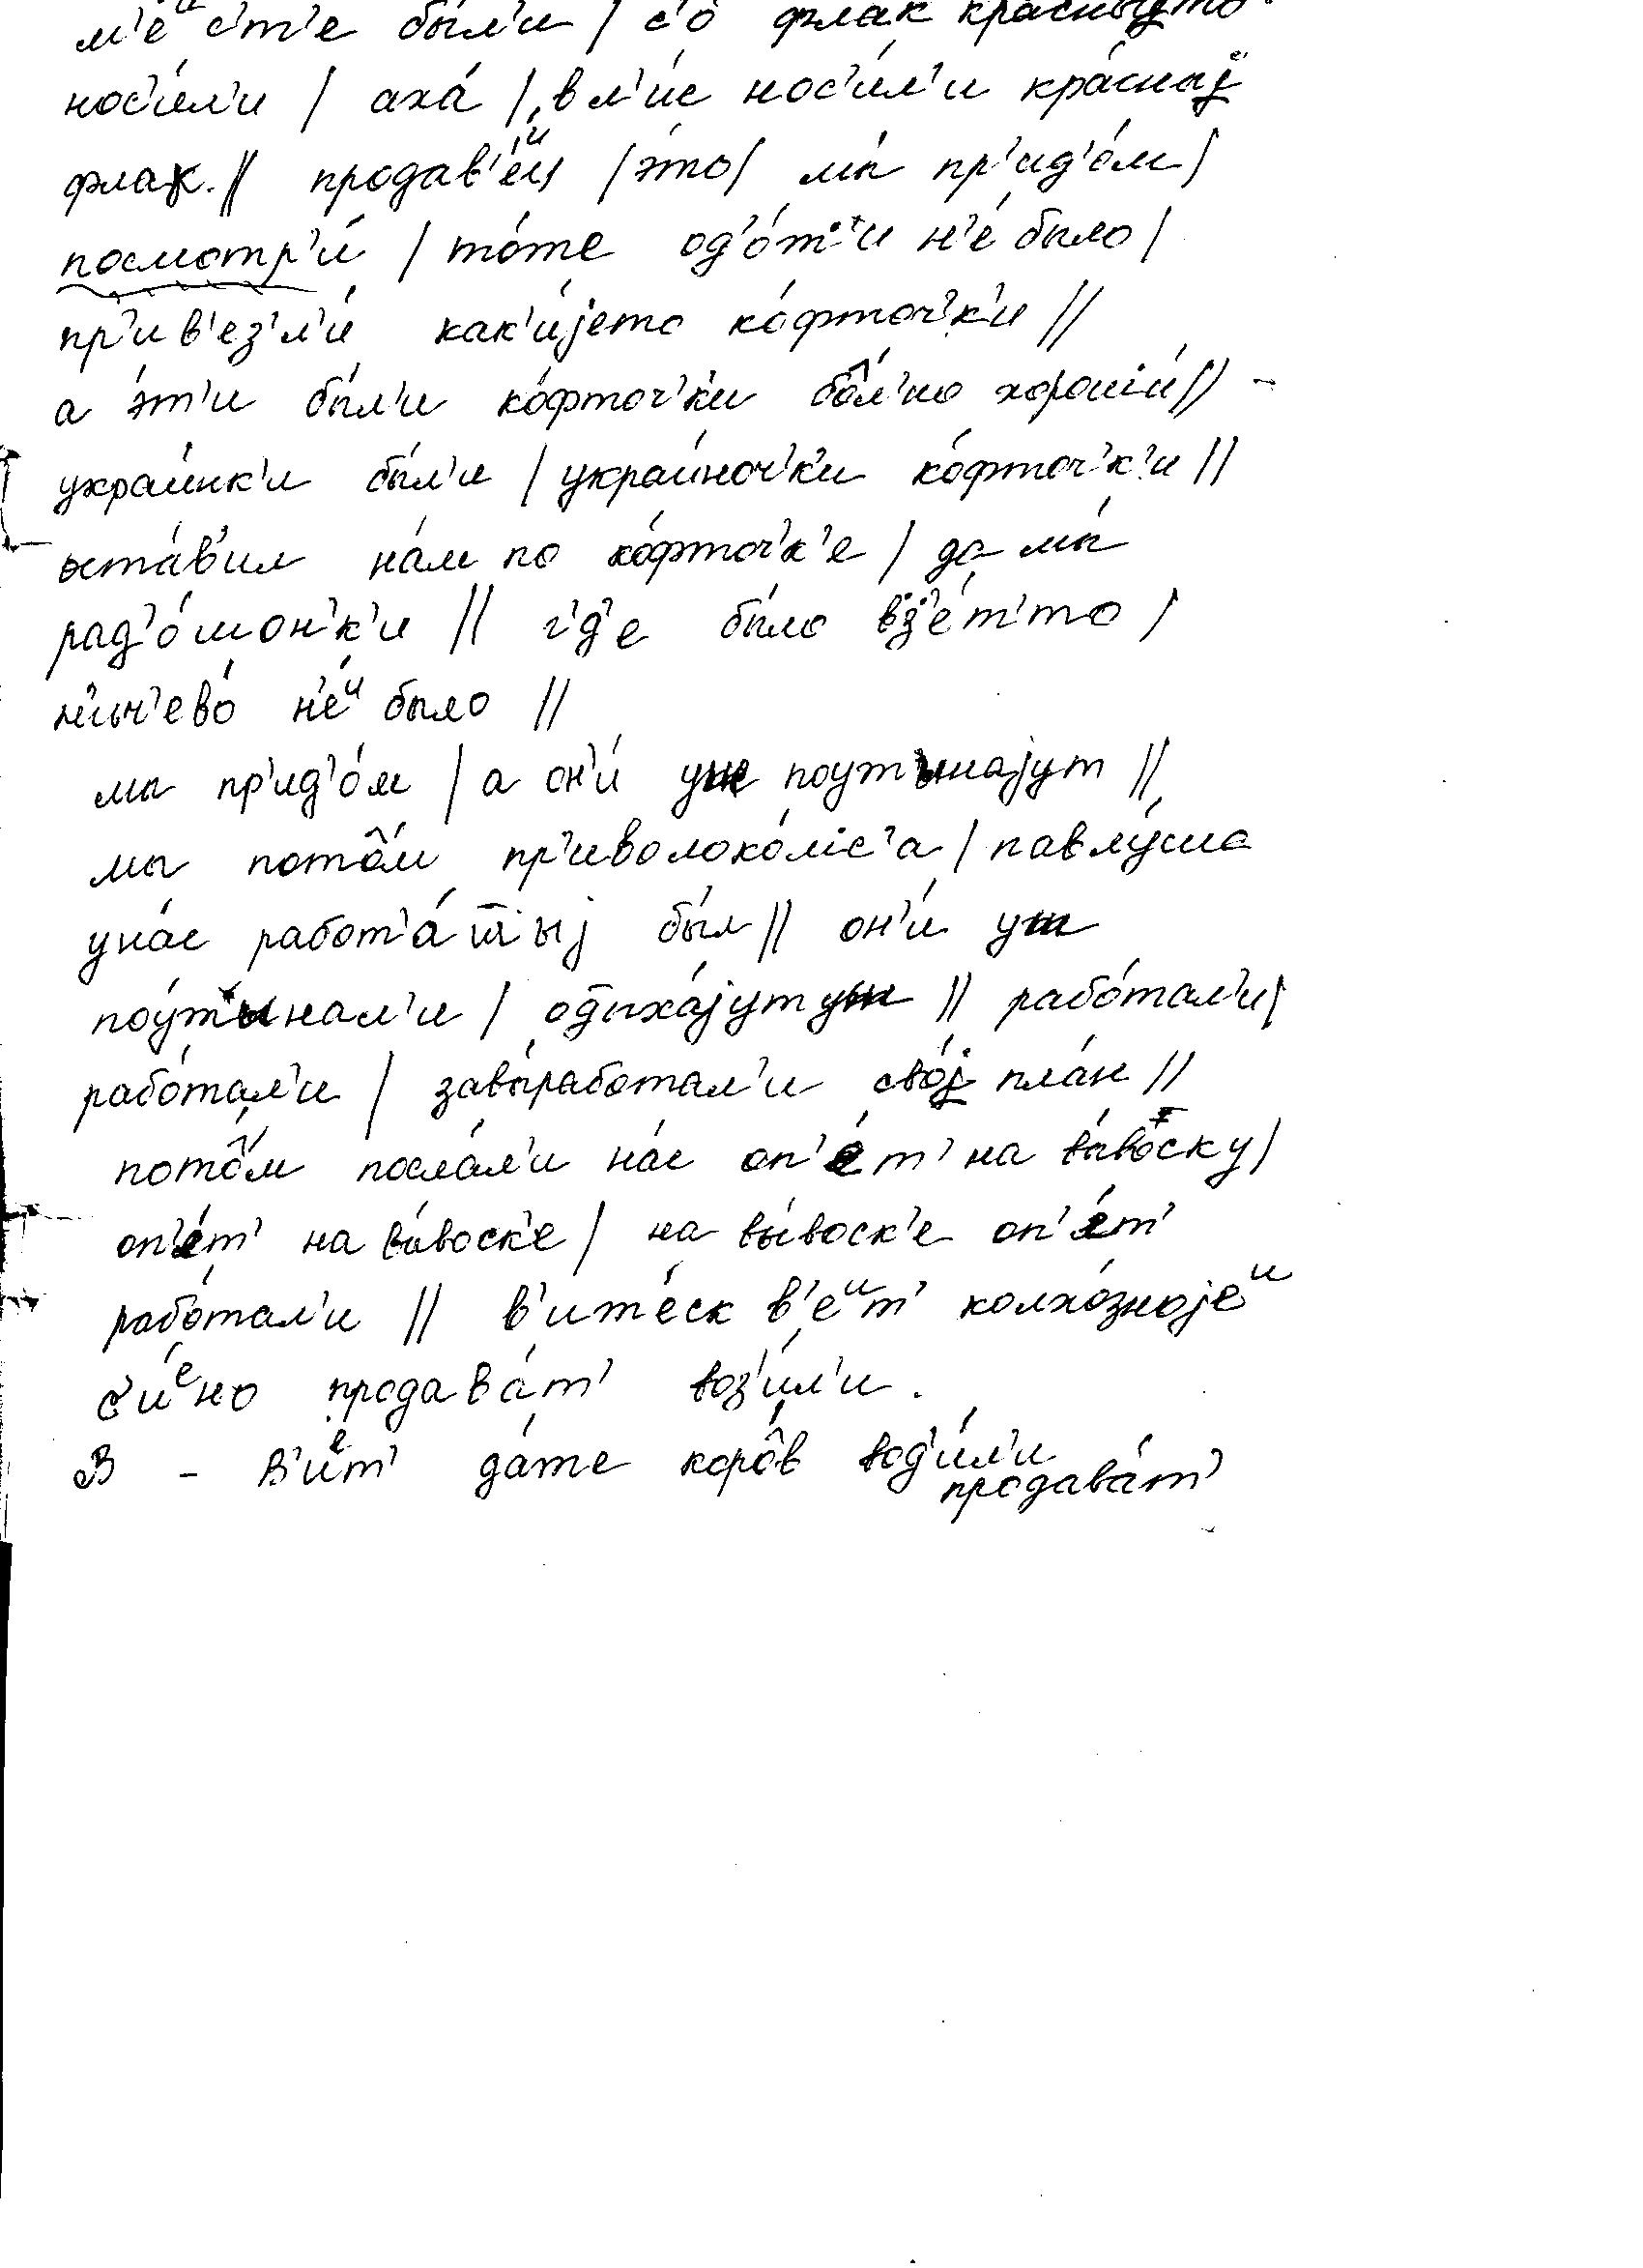 м'е́ᵘс'т'е бы́л'и / с'о̂ флак красныjто
нос'и́л'и / аха́ / в л'и́с нос'и́л'и кра́сныj
флак. // продав'е́ᵘц / э́то / мы́ пр'ид'о́м /
посмотр'и́ / то́же од'о́жи н'е́ было /
пр'ив'ез'л'и́ как'и́jето ко́фточ'к'и //
а э́т'и бы́л'и ко́фточ'к'и бо̂л'но хорош'и́ //
украи́нк'и бы́л'и / украи́ноч'к'и ко́фточ'к'и //
оста́в'ил на́м по ко́фточ'к'е / да мы́
рад'о́шон'к'и // г'д'е бы́ло вз'е́т'то /
н'ич'ево́ н'е́ᵘ было //
мы пр'ид'о́м / а он'и́ уш поутынаjут //
мы пото̂́м пр'иволоко́мс'а / павлу́ша
у на́с работ'а́шшыj бы́л // он'и́ уш
поу́тынал'и / одыха́jут уш // рабо́тал'и /
рабо́тал'и / завы́работал'и сво́j пла́н //
пото̂́м посла́л'и на́с оп'е́т' на вы́воску /
оп'е́т' на вы́воск'е / на вы́воск'е оп'е́т'
рабо́тал'и // в'ите́ск в'еᵘт' колхо́зноjеᵘ
с'и́ᵉно продава́т' воз'и́л'и.
В – в'и́ᵉт' да́же коро̂в вод'и́л'и
продава́т'